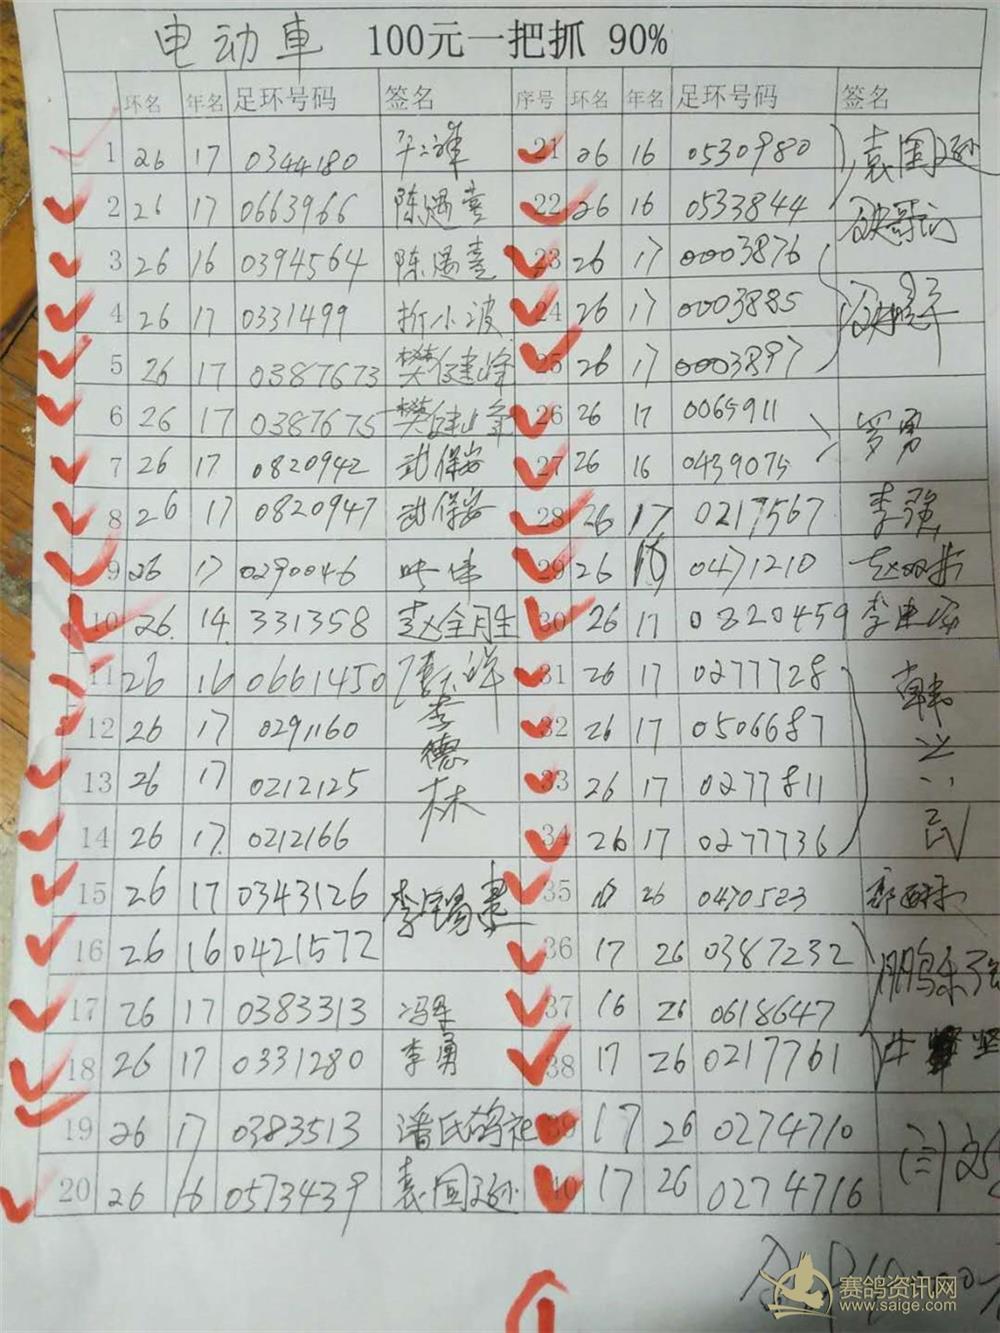 电动車 100元一把抓 90%
环名 年名 足环号码 签名 序号 环名 年名 足环号码 签名
1 26 17 0344180 21 26 16 0530980 袁国
2 26 17 0663966 陈遇喜 22 26 16 0533844
3 26 16 0394564 陈遇喜 23 26 17 0003876
4 26 17 0331499 折小波 24 26 17 0003885
5 26 17 0387673 樊健峰 25 26 17 0003897
6 26 17 0387675 樊健峰 26 26 17 0065911 罗勇
7 26 17 0820942 武保安 27 26 16 0439075
8 26 17 0820947 武保安 28 26 17 0217567 李强
9 26 17 0290046 29 26 0471210
10 26. 14. 331358 赵全胜 30 26 17 0820459
11 26 16 0661450 31 26 17 0277728 韩
12 26 17 0291160 李德林 32 26 17 0506687
13 26 17 0212125 33 26 17 0277811
14 26 17. 0212166 34 26 17 0277736 民
15 26 17 0343126 李 35 17 26 0470523
16 26 16 0421572 36 17 26 0387232 鹏
17 26 17 0383313 冯军 37 16 26 0618647
18 26 17 0331280 李勇 38 17 26 0217761 牛 坚
19 26 17 0383513 潘氏鸽社 39 17 26 0274710
20 26 16 0573439 袁国 40 17 26 0274716
赛鸽资讯网
www.saige.com